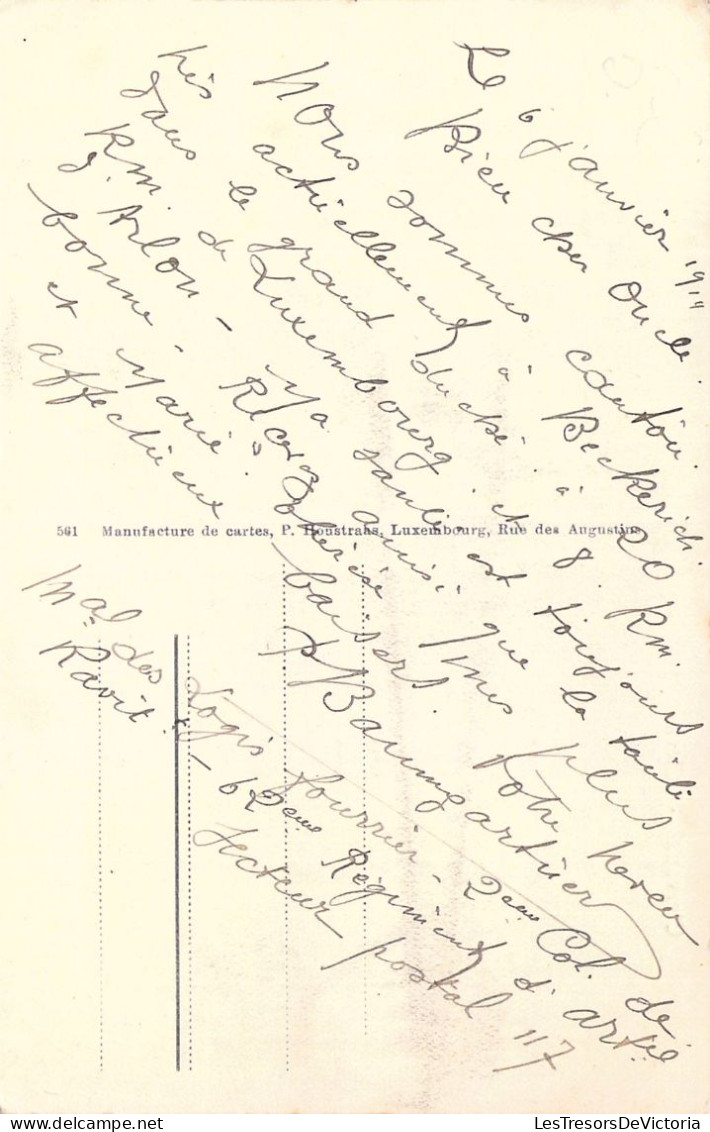 Le 6 janvier 1919
Bien cher oncle.
Nous sommes cantonnés
actuellement à Beckerich
dans le grand duché. à 20 Km.
de Luxembourg et à 8
Km. d'Arlon – Ma santé est toujours
bonne. ainsi que la tante
et Marie.
Recevez mes plus
affectueux baisers. Votre neveu
P Baumgartner
561 Manufacture de cartes, P. Houstraas, Luxembourg, Rue des Augustins
Mal des Logis fourrier – 2ème Col. de
Ravit. t – 62ème Régiment d'artie
Secteur postal 117
LesTresorsDeVictoria
www.delcampe.net